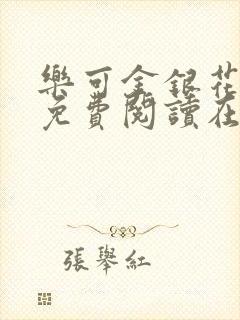 樂可金銀花
免費閱讀在
張舉紅